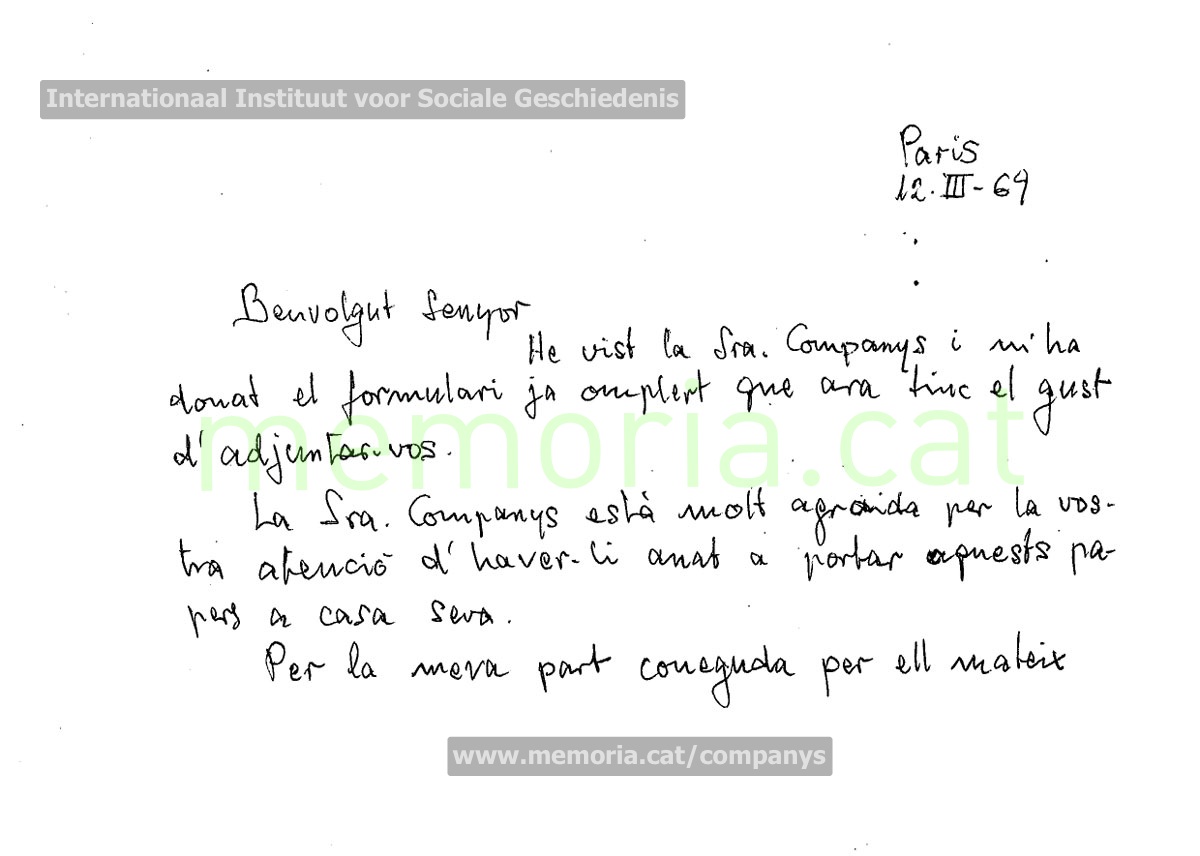 Internationaal Instituut voor Sociale Geschiedenis
Paris
12.III-69
Benvolgut Senyor
He vist la Sra. Companys i m'ha
donat el formulari ja omplert que ara tinc el gust
d'adjuntar-vos.
memoria.cat
La Sra. Companys està molt agraida per la vos-
tra atenció d'haver-li anat a portar aquests pa-
pers a casa seva.
Per la meva part coneguda per ell mateix
www.memoria.cat/companys